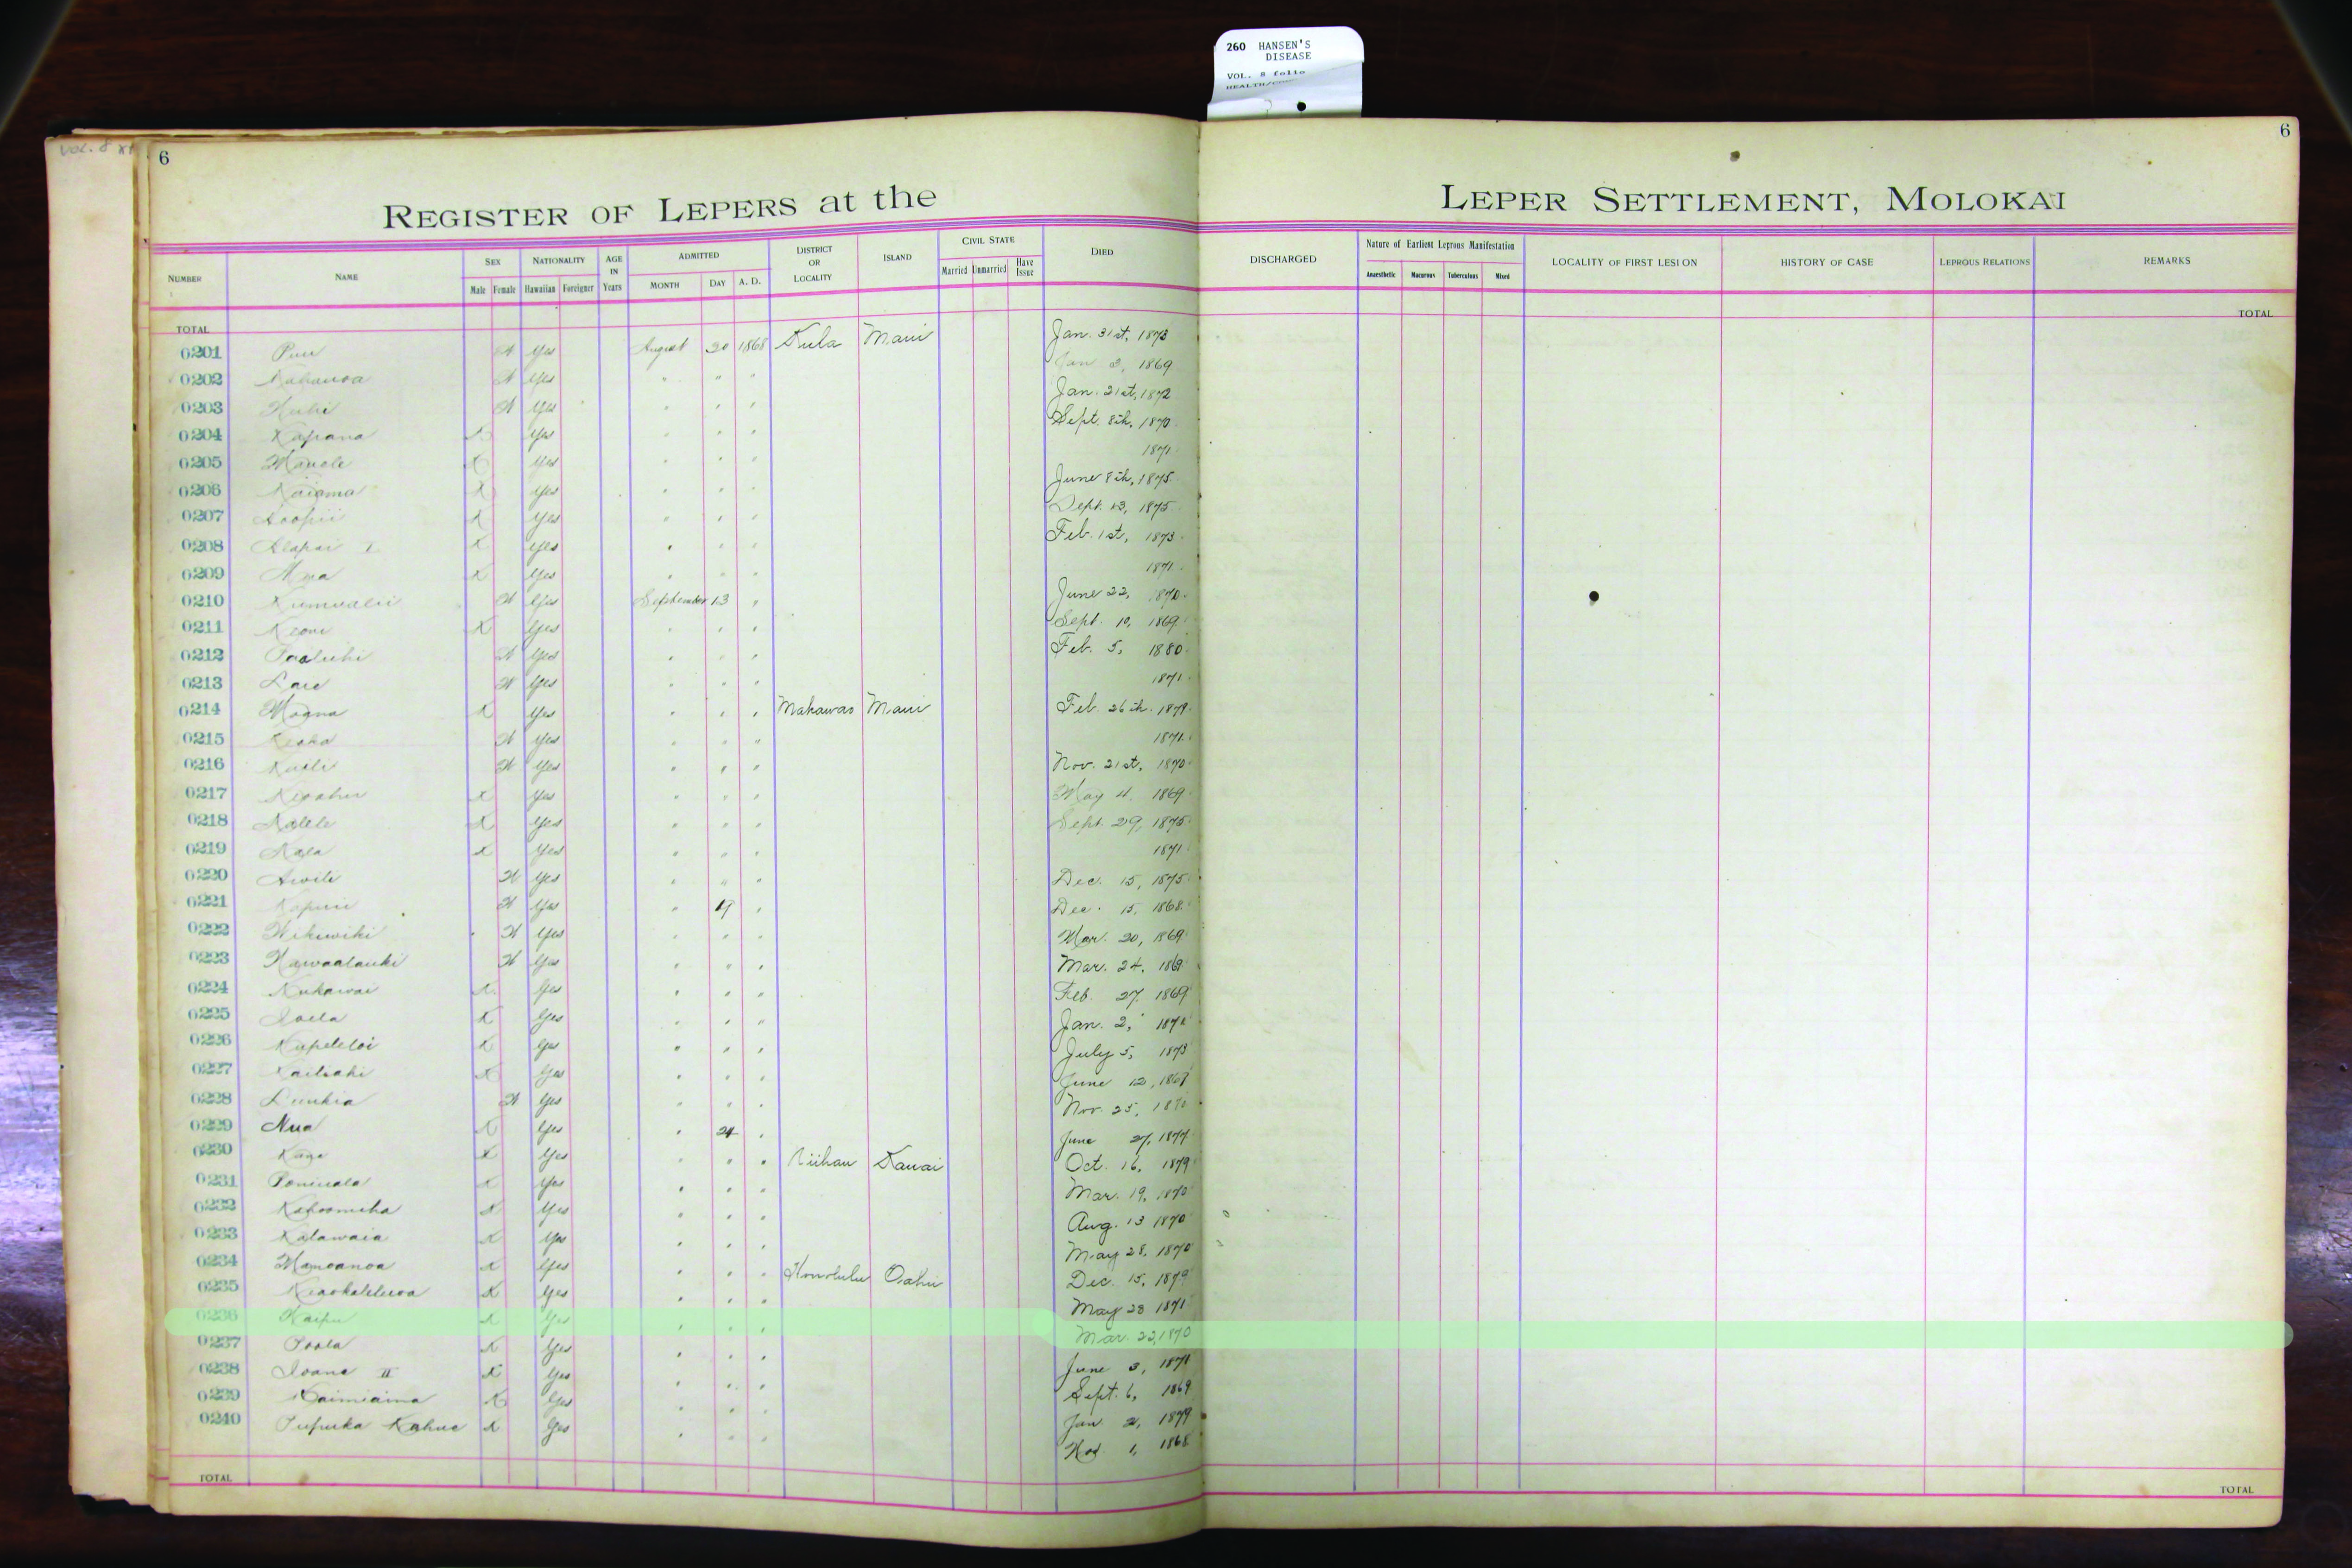 260 HANSEN'S
DISEASE
VOL. 8 folio
6
6
REGISTER OF LEPERS at the LEPER SETTLEMENT, MOLOKAI
NUMBER NAME SEX Male Female NATIONALITY Hawaiian Foreigner AGE IN Years ADMITTED MONTH DAY A. D. DISTRICT OR LOCALITY ISLAND CIVIL STATE Married Unmarried Have Issue DIED DISCHARGED Nature of Earliest Leprous Manifestation Anaesthetic Macurous Tuberculous Mixed LOCALITY OF FIRST LESION HISTORY OF CASE LEPROUS RELATIONS REMARKS
TOTAL TOTAL
0201 Puu Yes August 20 1868 Kula Maui Jan. 31st, 1873
0202 Yes " " " Jan 2, 1869
0203 Yes " " " Jan. 21st, 1872
0204 Kapana X Yes " " " Sept. 8th, 1870
0205 Manele X Yes " " " 1871
0206 Naiama X Yes " " " June 8th, 1875
0207 Koopii X Yes " " " Sept. 13, 1875
0208 Alapai I X Yes " " " Feb. 1st, 1873
0209 X Yes " " " 1871
0210 Kumualii Yes September 13 " June 22, 1870
0211 Keone X Yes " " " Sept. 10, 1869
0212 Paaluhi Yes " " " Feb. 5, 1880
0213 Yes " " " 1871
0214 Moana X Yes " " " Makawao Maui Feb. 26th. 1879
0215 Yes " " " 1871
0216 Kaili Yes " " " Nov. 21st, 1870
0217 X Yes " " " May 4, 1869
0218 X Yes " " " Sept. 29, 1875
0219 X Yes " " " 1871
0220 Awili Yes " " " Dec. 15, 1875
0221 Yes " 19 " Dec. 15, 1868
0222 Wikiwiki Yes " " " Mar. 20, 1869
0223 Kawaalauki Yes " " " Mar. 24, 1869
0224 Nukawai X Yes " " " Feb. 27, 1869
0225 Ioela X Yes " " " Jan. 2,
0226 Kupeleloi X Yes " " " July 5, 1873
0227 X Yes " " " June 12, 1869
0228 Yes " " " Nov. 25, 1870
0229 Nua X Yes " 24 " June 27, 1877
0230 X Yes " " " Niihau Kauai Oct. 16, 1879
0231 X Yes " " " Mar. 19, 1870
0232 X Yes " " " Aug. 13 1870
0233 Kalawaia X Yes " " " May 28, 1870
0234 Mamoanoa X Yes " " " Honolulu Oahu Dec. 15, 1879
0235 X Yes " " " May 23 1871
0236 Kaipu X Yes " " " Mar. 22, 1870
0237 Poola X Yes " " " June 3, 1871
0238 Ioane II X Yes " " " Sept. 6, 1869
0239 X Yes " " " Jan 2, 1879
0240 Pupuka Kahue X Yes " " " Nov 1, 1868
TOTAL TOTAL